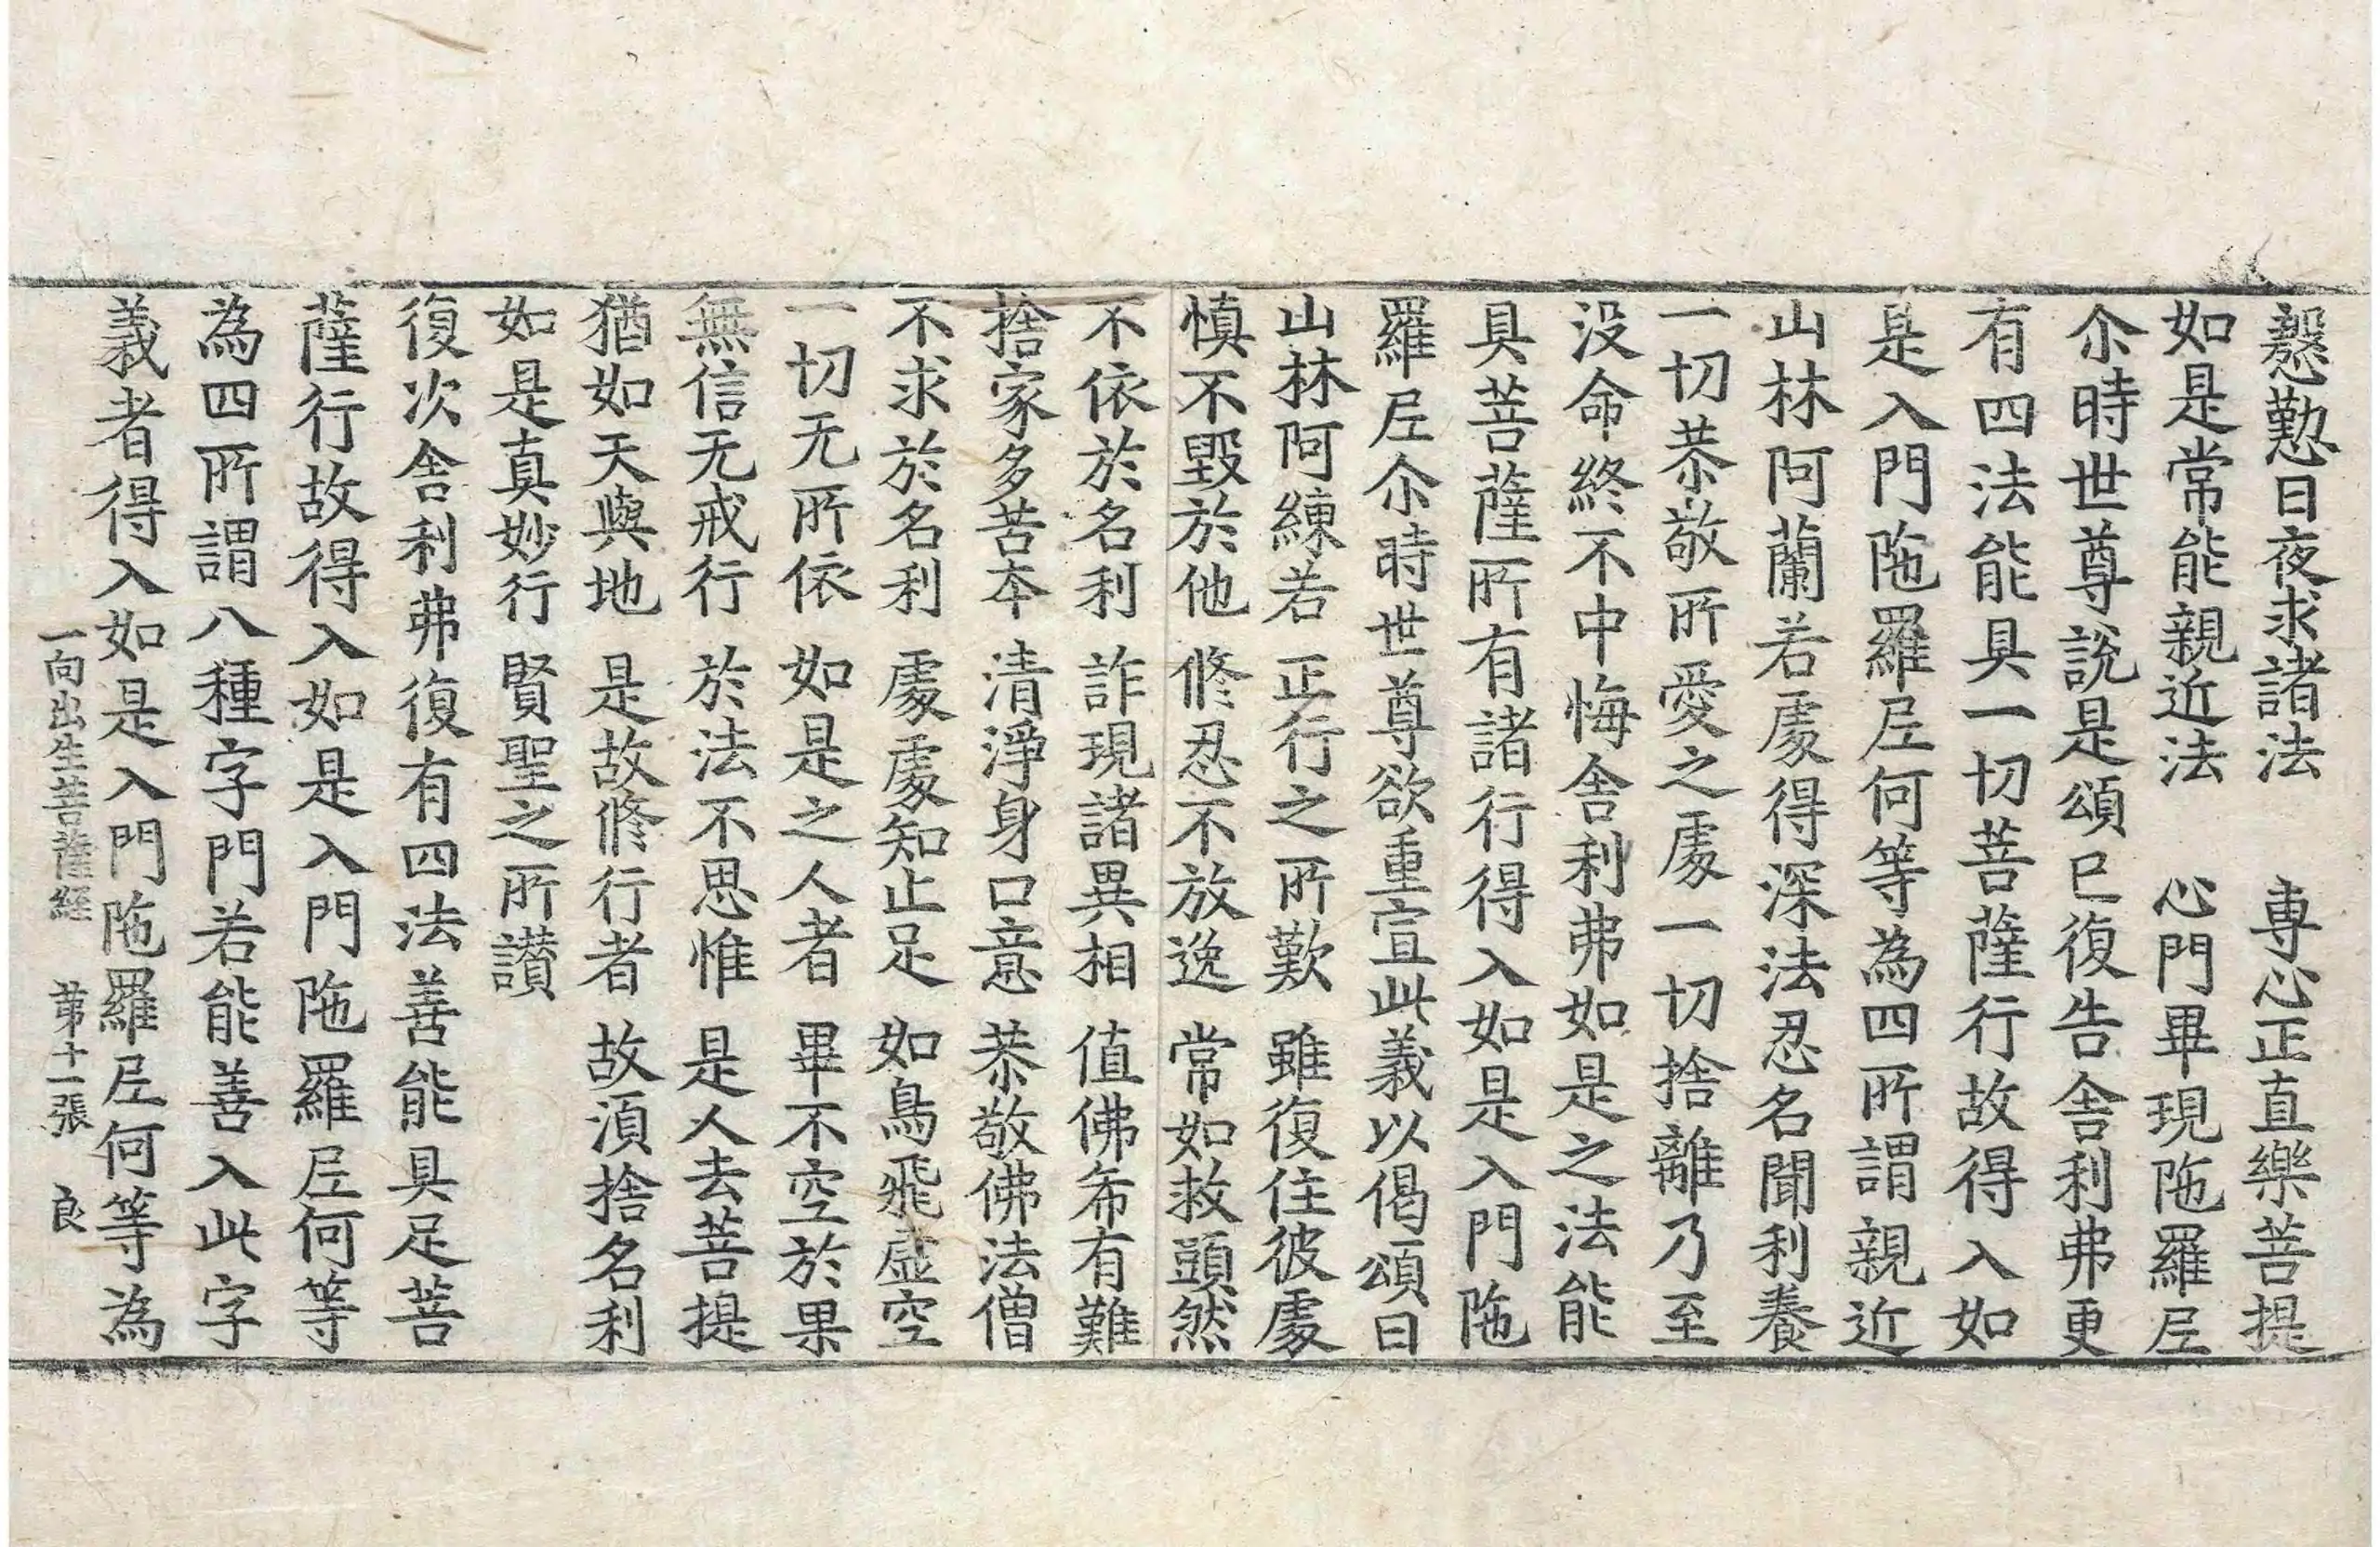 慇懃日夜求諸法　專心正直樂菩提
如是常能親近法　心門畢現陁羅𡰱
尒時世尊說是頌已復告舎利弗更
有四法能具一切菩薩行故得入如
是入門陁羅𡰱何等為四所謂親近
山林阿蘭若處得深法忍名聞利養
一切恭敬所愛之處一切捨離乃至
没命終不中悔舎利弗如是之法能
具菩薩所有諸行得入如是入門陁
羅𡰱尒時世尊欲重宣此義以偈頌曰
山林阿練若　正行之所歎　雖復住彼處
慎不毀於他　修忍不放逸　常如救頭然
不依於名利　詐現諸異相　值佛希有難
捨家多苦本　清淨身口意　恭敬佛法僧
不求於名利　處處知止足　如鳥飛虛空
一切无所依　如是之人者　畢不空於果
無信无戒行　於法不思惟　是人去菩提
猶如天與地　是故修行者　故湏捨名利
如是真妙行　賢聖之所讃
復次舎利弗復有四法善能具足菩
薩行故得入如是入門陁羅𡰱何等
為四所謂八種字門若能善入此字
義者得入如是入門陁羅𡰱何等為
一向出生菩薩經　苐十一張　良